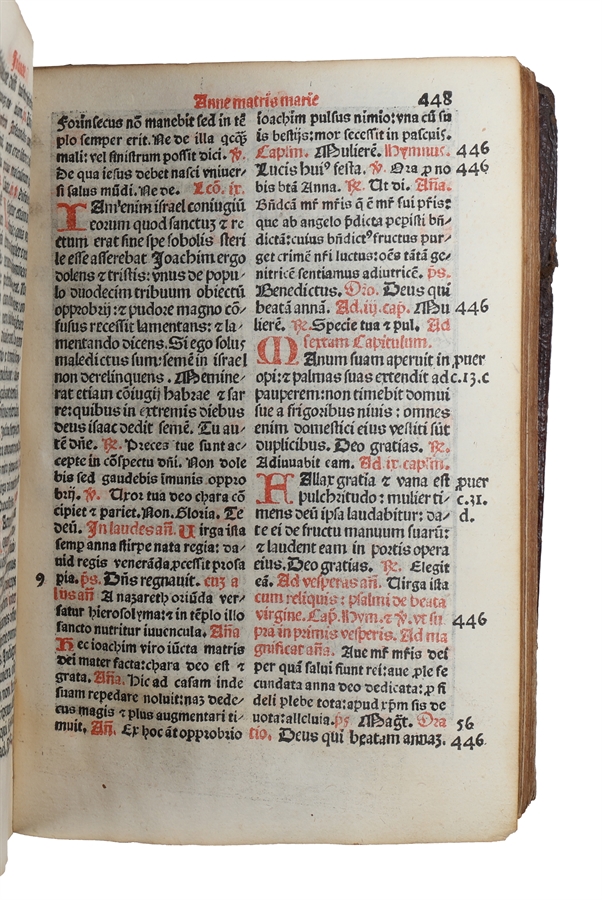 Anne matris marie 448
Forinsecus nō manebit sed in tē
plo semper erit. Ne de illa qcq̄
mali: vel sinistrum possit dici. ℣.
De qua iesus debet nasci vniuer⸗
si salus mūdi. Ne de. Lcō. ix.
IAm enim israel coniugiū
eorum quod sanctuꝫ ⁊ re
ctum erat sine spe sobolis steri
le esse asserebat Joachim ergo
dolens ⁊ tristis: vnus de popu⸗
lo duodecim tribuum obiectū
opprobrij: ⁊ pudore magno cō⸗
fusus recessit lamentans: ⁊ la⸗
mentando dicens. Si ego solus
maledictus sum: semē in israel
non derelinquens. Memine⸗
rat etiam cōiugij habrae ⁊ sar
re: quibus in extremis diebus
deus isaac dedit semē. Tu au⸗
tē dn̄e. ℟. Preces tue sunt ac⸗
cepte in cōspectu dn̄i. Non dole
bis sed gaudebis īmunis oppro
brij. ℣. Uxor tua deo chara cō
cipiet ⁊ pariet. Non. Gloria. Te
deū. In laudes an̄. Uirga ista
semp anna stirpe nata regia: da⸗
uid regis venerāda ꝓcessit prosa
9 pia. ps. Dn̄s regnauit. cuꝫ a
lijs an̄ A nazareth oriūda ver⸗
satur hierosolyma: ⁊ in tēplo illo
sancto nutritur iuuencula. An̄a
Hec ioachim viro iūcta matris
dei mater facta: chara deo est ⁊
grata. An̄a. Hic ad casam inde
suam repedare noluit: naꝫ dede⸗
cus magis ⁊ plus augmentari ti⸗
muit. An̄. Ex hoc āt opprobrio
ioachim pulsus nimio: vna cū su
is bestijs: mox secessit in pascuis.
Caplm. Mulierē. Hymnus. 446
Lucis huiꝰ festa. ℣. Ora ꝓ no 446
bis btā Anna. ℟. Ut di. An̄a.
Bn̄dcā mr̄ mr̄is q̄ ē mr̄ sui pr̄is:
que ab angelo p̄dicta pepisti bn̄⸗
dictā: cuius bn̄dictꝰ fructus pur⸗
get crimē nr̄i luctus: oēs tātā ge⸗
nitricē sentiamus adiutricē. ps.
Benedictus. Oro. Deus qui
beatā annā. Ad .iij. cap. Mu 446
lierē. ℟. Specie tua ⁊ pul. Ad
sextam Capitulum.
MAnum suam aperuit in ꝓuer
opi: ⁊ palmas suas extendit ad c.13.c
pauperem: non timebit domui
sue a frigoribus niuis: omnes
enim domestici eius vestiti sūt
duplicibus. Deo gratias. ℟.
Adiuuabit eam. Ad .ix. caplm.
FAllax gratia ⁊ vana est ꝓuer
pulchritudo: mulier ti⸗ c.31.
mens deū ipsa laudabitur: da⸗ d.
te ei de fructu manuum suarū:
⁊ laudent eam in portis opera
eius. Deo gratias. ℟. Elegit
eā. Ad vesperas an̄. Uirga ista
cum reliquis: psalmi de beata
virgine. Cap. Hym. ⁊ ℣. vt su 446
pra in primis vesperis. Ad ma
gnificat an̄a. Aue mr̄ mr̄is dei
per quā salui fiunt rei: aue ꝓle se
cundata anna deo dedicata: ꝓ fi
deli plebe tota: apud xp̄m sis de
uota: alleluia. ps Magt̄. Ora 56
tio. Deus qui beatam annaꝫ. 446